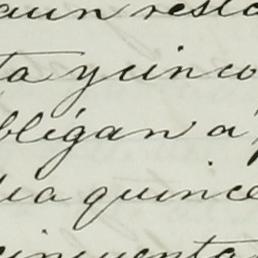 aun resta
ta y cinco
bligan a
dia quince
cincuenta